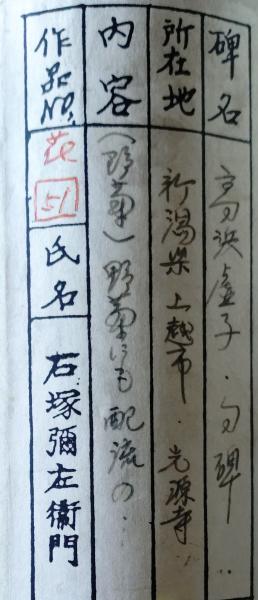 碑名 高浜虚子・句碑‥
所在地 新潟県上越市・光源寺‥
内容 (野菊)野菊にも配流の‥
作品No. 花 51 氏名 石塚彌左衞門